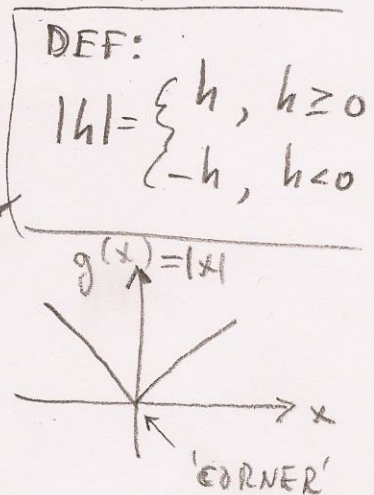 DEF:
|h| = { h, h ≥ 0
-h, h < 0
g(x) = |x|
x
'CORNER'